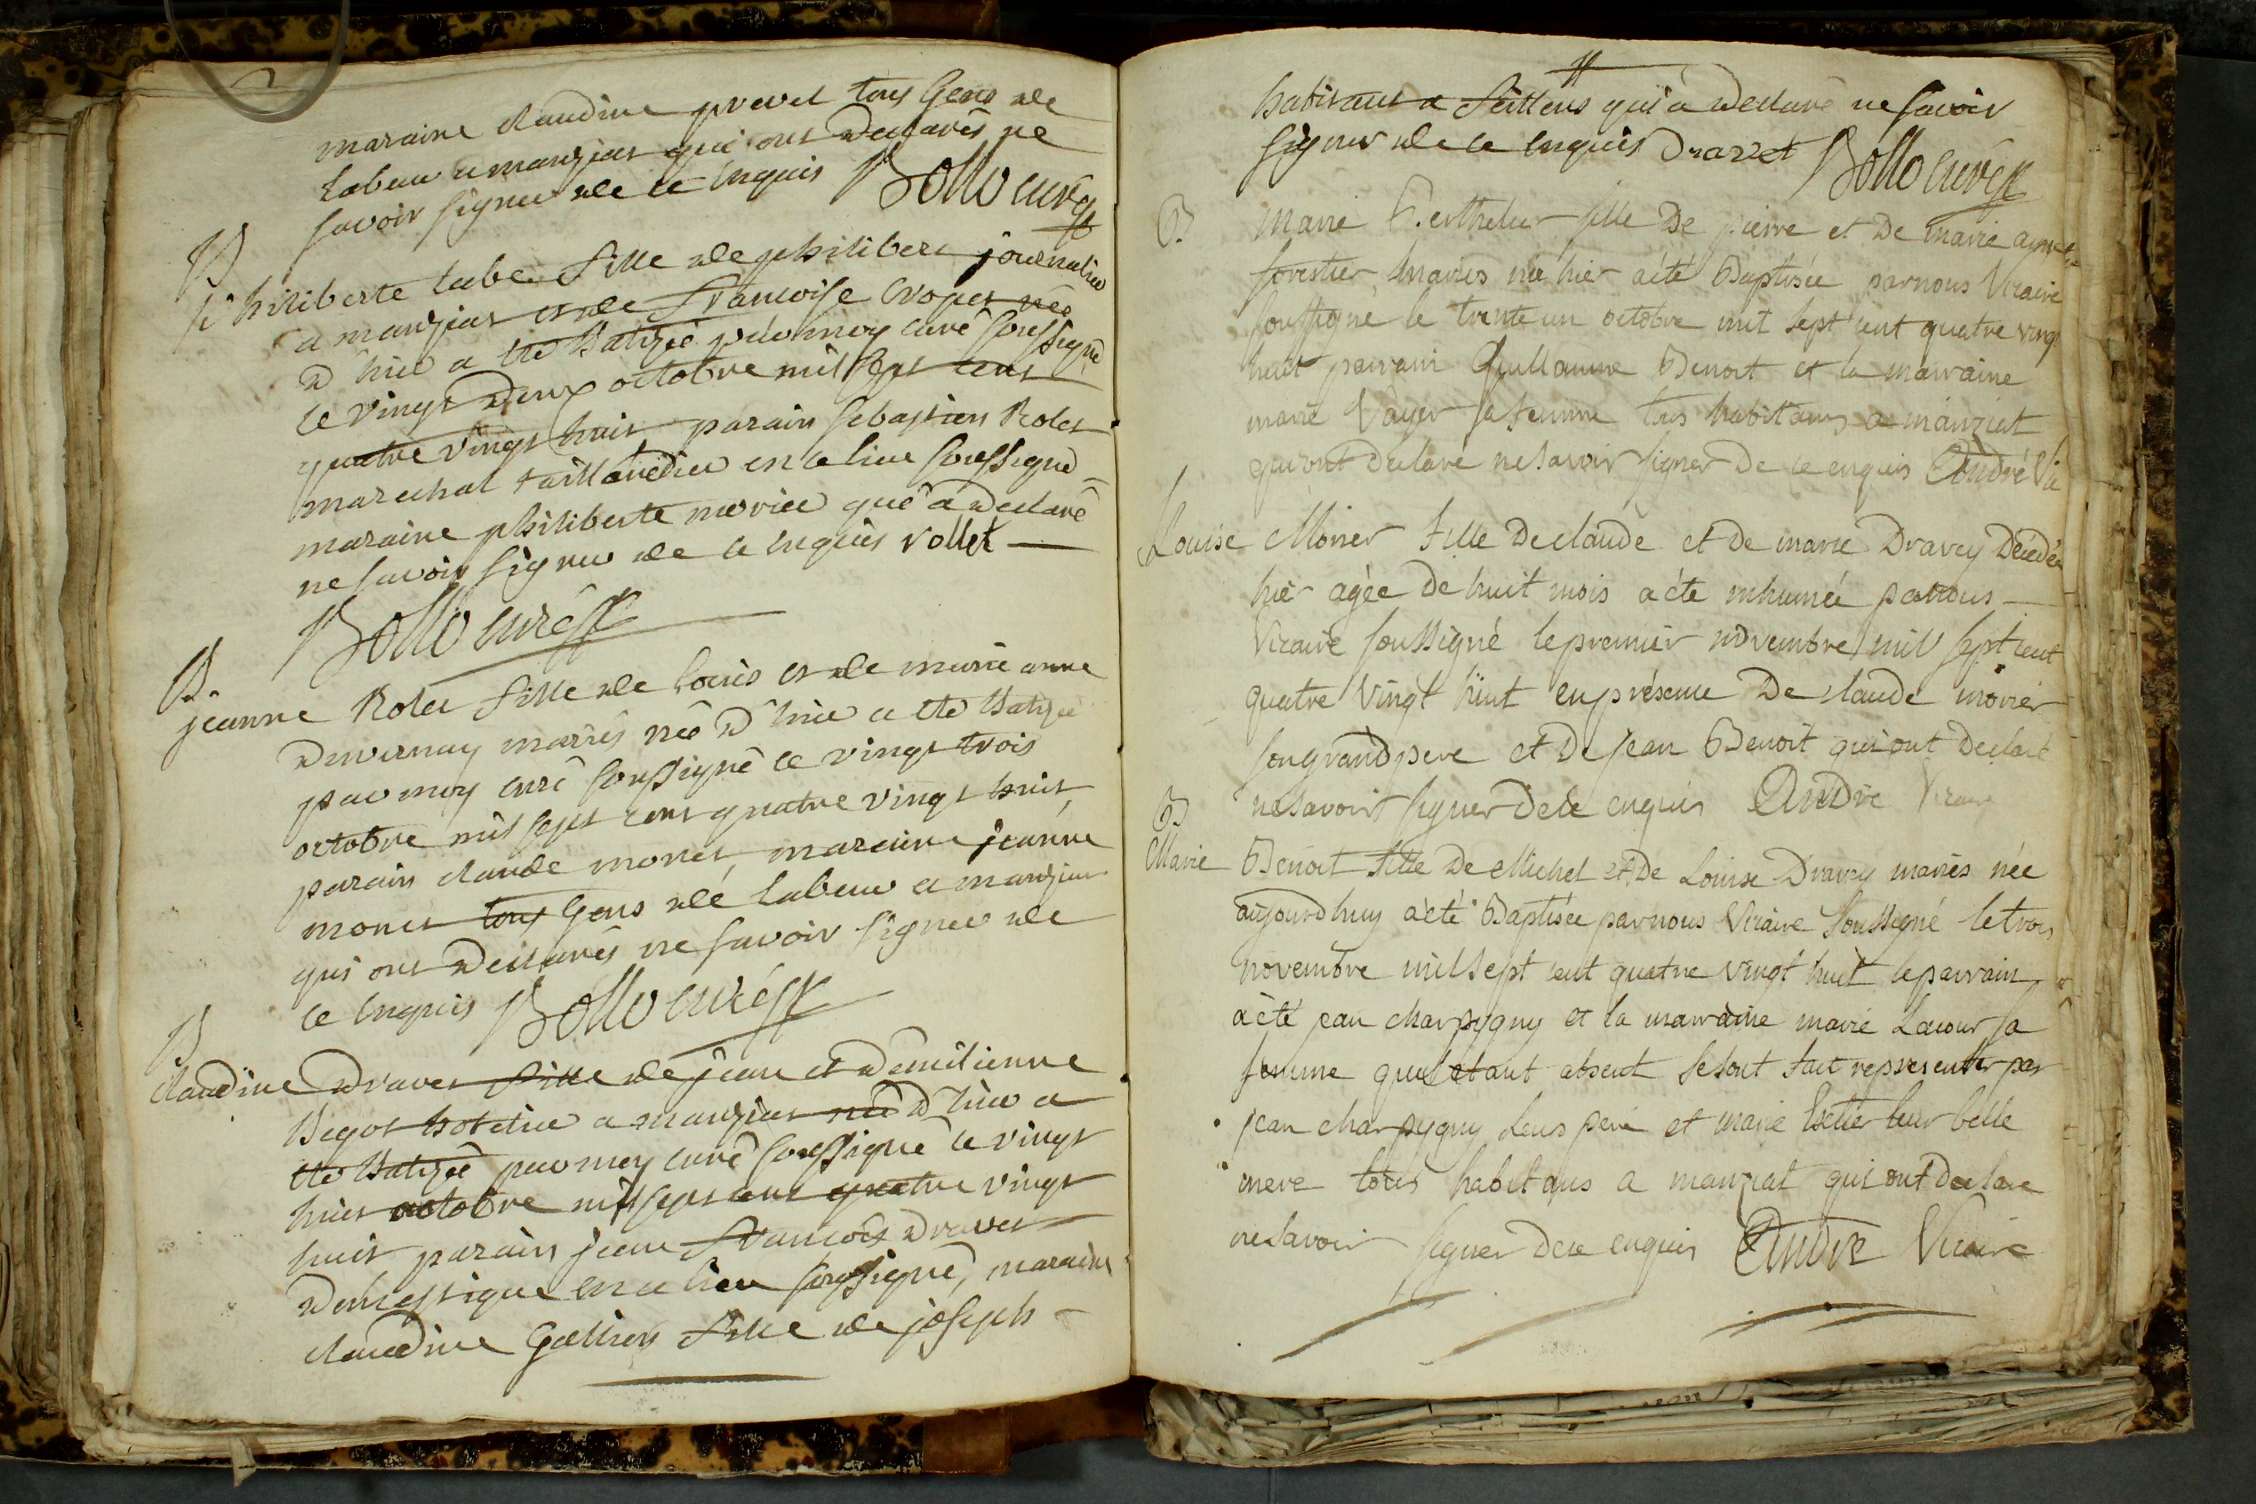 maraine claudine prevel tous Gens de
labeur a manziat qui ont declarés ne
savoir signer de ce enquis Bollo curé
B
philiberte lube fille de philibert journalier
a manziat et de francoise Croper née
d'hier a été Batizée par moy curé soussigné
le vingt deux octobre mil sept cent
quatre vingt huit parain sebastien Rolet
marechal taillandier en ce lieu soussigné
maraine philiberte morier qui a declaré
ne savoir signer de ce enquis rollet
Bollo curé
B.
jeanne Rolet fille de louis et de marie anne
Duvernay mariés née d'hier a été Batizée
par moy curé soussigné le vingt trois
octobre mil sept cent quatre vingt huit,
parain claude monet, maraine jeanne
monet tous Gens de labeur a manziat
qui ont declarés ne savoir signer de
ce enquis Bollo curé
B
claudine Dravet fille de jean et d'emilienne
Begot hotelier a manziat née d'hier a
été Batizée par moy curé soussigné le vingt
huit octobre mil sept cent quatre vingt
huit parain jean francois Dravet
Domestique en ce lieu soussigné, maraine
claudine Gallion fille de joseph
habitant a qui a declaré ne savoir
signer de ce enquis Dravet Bollo curé
B
Marie Berthelier fille de pierre et de marie
forestier mariés née hier a été Baptisée par nous Vicaire
soussigné le trente un octobre mil sept cent quatre vingt
huit parrain Guillaume Benoit et la marraine
marie Vayer sa femme tous habitans a manziat
qui ont declaré ne savoir signer de ce enquis André Vic
Louise Morier fille de claude et de marie Dravey Décédée
hier agée de huit mois a été inhumée par nous
Vicaire soussigné le premier novembre mil sept cent
quatre vingt huit en présence de claude morier
son grand pere et de jean Benoit qui ont declaré
ne savoir signer de ce enquis André Vicaire
B
Marie Benoit fille de Michel et de Louise Dravey mariés née
aujourdhuy a été Baptisée par nous Vicaire soussigné le trois
novembre mil sept cent quatre vingt huit le parrain
a été jean charpygny et la marraine marie Lacour sa
femme qui etant absent se sont fait representer par
jean charpygny leur pere et marie leur belle
mere tous habitans a manziat qui ont declaré
ne savoir signer de ce enquis André Vicaire